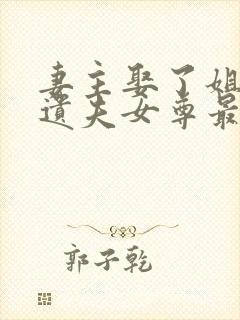 妻主娶了姐
遗夫女尊最
郭子乾